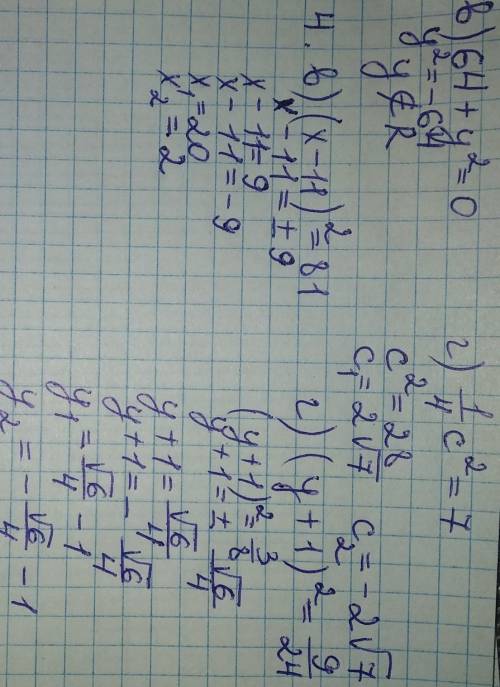 в) 64 + y² = 0
y² = -64
y ∉ R
г) 1/4 c² = 7
c² = 28
c₁ = 2√7 c₂ = -2√7
4. в) (x - 11)² = 81
x - 11 = ± 9
x - 11 = 9
x - 11 = -9
x₁ = 20
x₂ = 2
г) (y + 1)² = 9/24
(y + 1)² = 3/8
y + 1 = ± √6/4
y + 1 = √6/4
y + 1 = - √6/4
y₁ = √6/4 - 1
y₂ = - √6/4 - 1